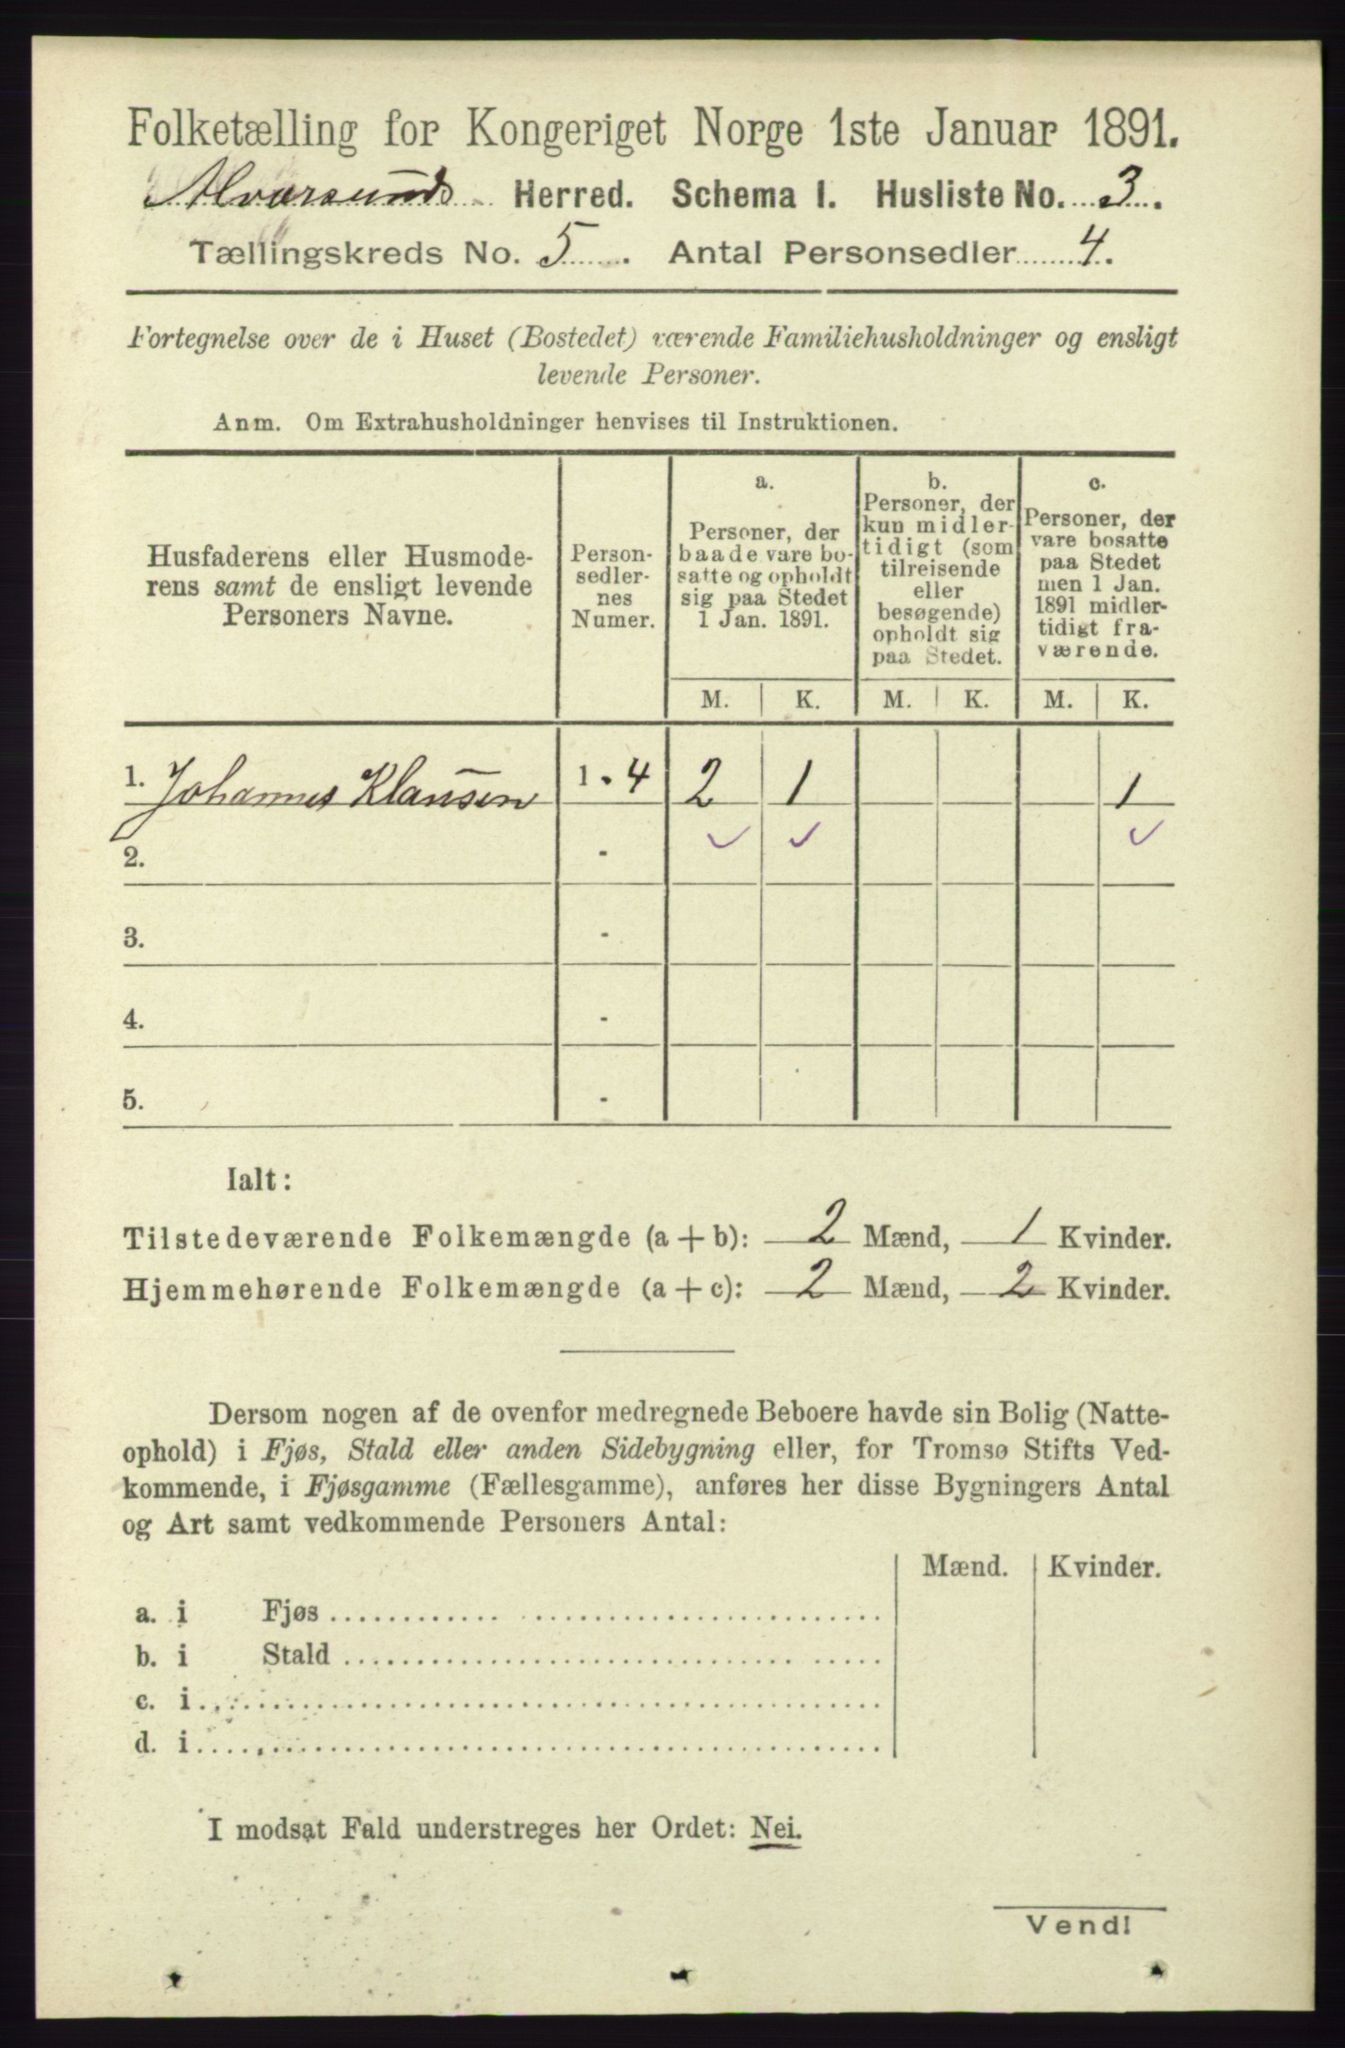 Folketælling for Kongeriget Norge 1ste Januar 1891.
Alversunds Herred. Schema I. Husliste No. 3.
Tællingskreds No. 5. Antal Personsedler 4.
Fortegnelse over de i Huset (Bostedet) værende Familiehusholdninger og ensligt
levende Personer.
Anm. Om Extrahusholdninger henvises til Instruktionen.
Husfaderens eller Husmode-
rens samt de ensligt levende
Personers Navne.
Person-
sedler-
nes
Numer.
a.
Personer, der
baade vare bo-
satte og opholdt
sig paa Stedet
1 Jan. 1891.
b.
Personer, der
kun midler-
tidigt (som
tilreisende
eller
besøgende)
opholdt sig
paa Stedet.
c.
Personer, der
vare bosatte
paa Stedet
men 1 Jan.
1891 midler-
tidigt fra-
værende.
M. K. M. K. M. K.
1. Johannes Klausen 1 - 4 2 1 1
2. - ✓ ✓ ✓
3. -
4. -
5. -
Ialt:
Tilstedeværende Folkemængde (a + b): 2 Mænd, 1 Kvinder.
Hjemmehørende Folkemængde (a + c): 2 Mænd, 2 Kvinder.
Dersom nogen af de ovenfor medregnede Beboere havde sin Bolig (Natte-
ophold) i Fjøs, Stald eller anden Sidebygning eller, for Tromsø Stifts Ved-
kommende, i Fjøsgamme (Fællesgamme), anføres her disse Bygningers Antal
og Art samt vedkommende Personers Antal:
Mænd. Kvinder.
a. i Fjøs
b. i Stald
c. i
d. i
I modsat Fald understreges her Ordet: Nei.
Vend!